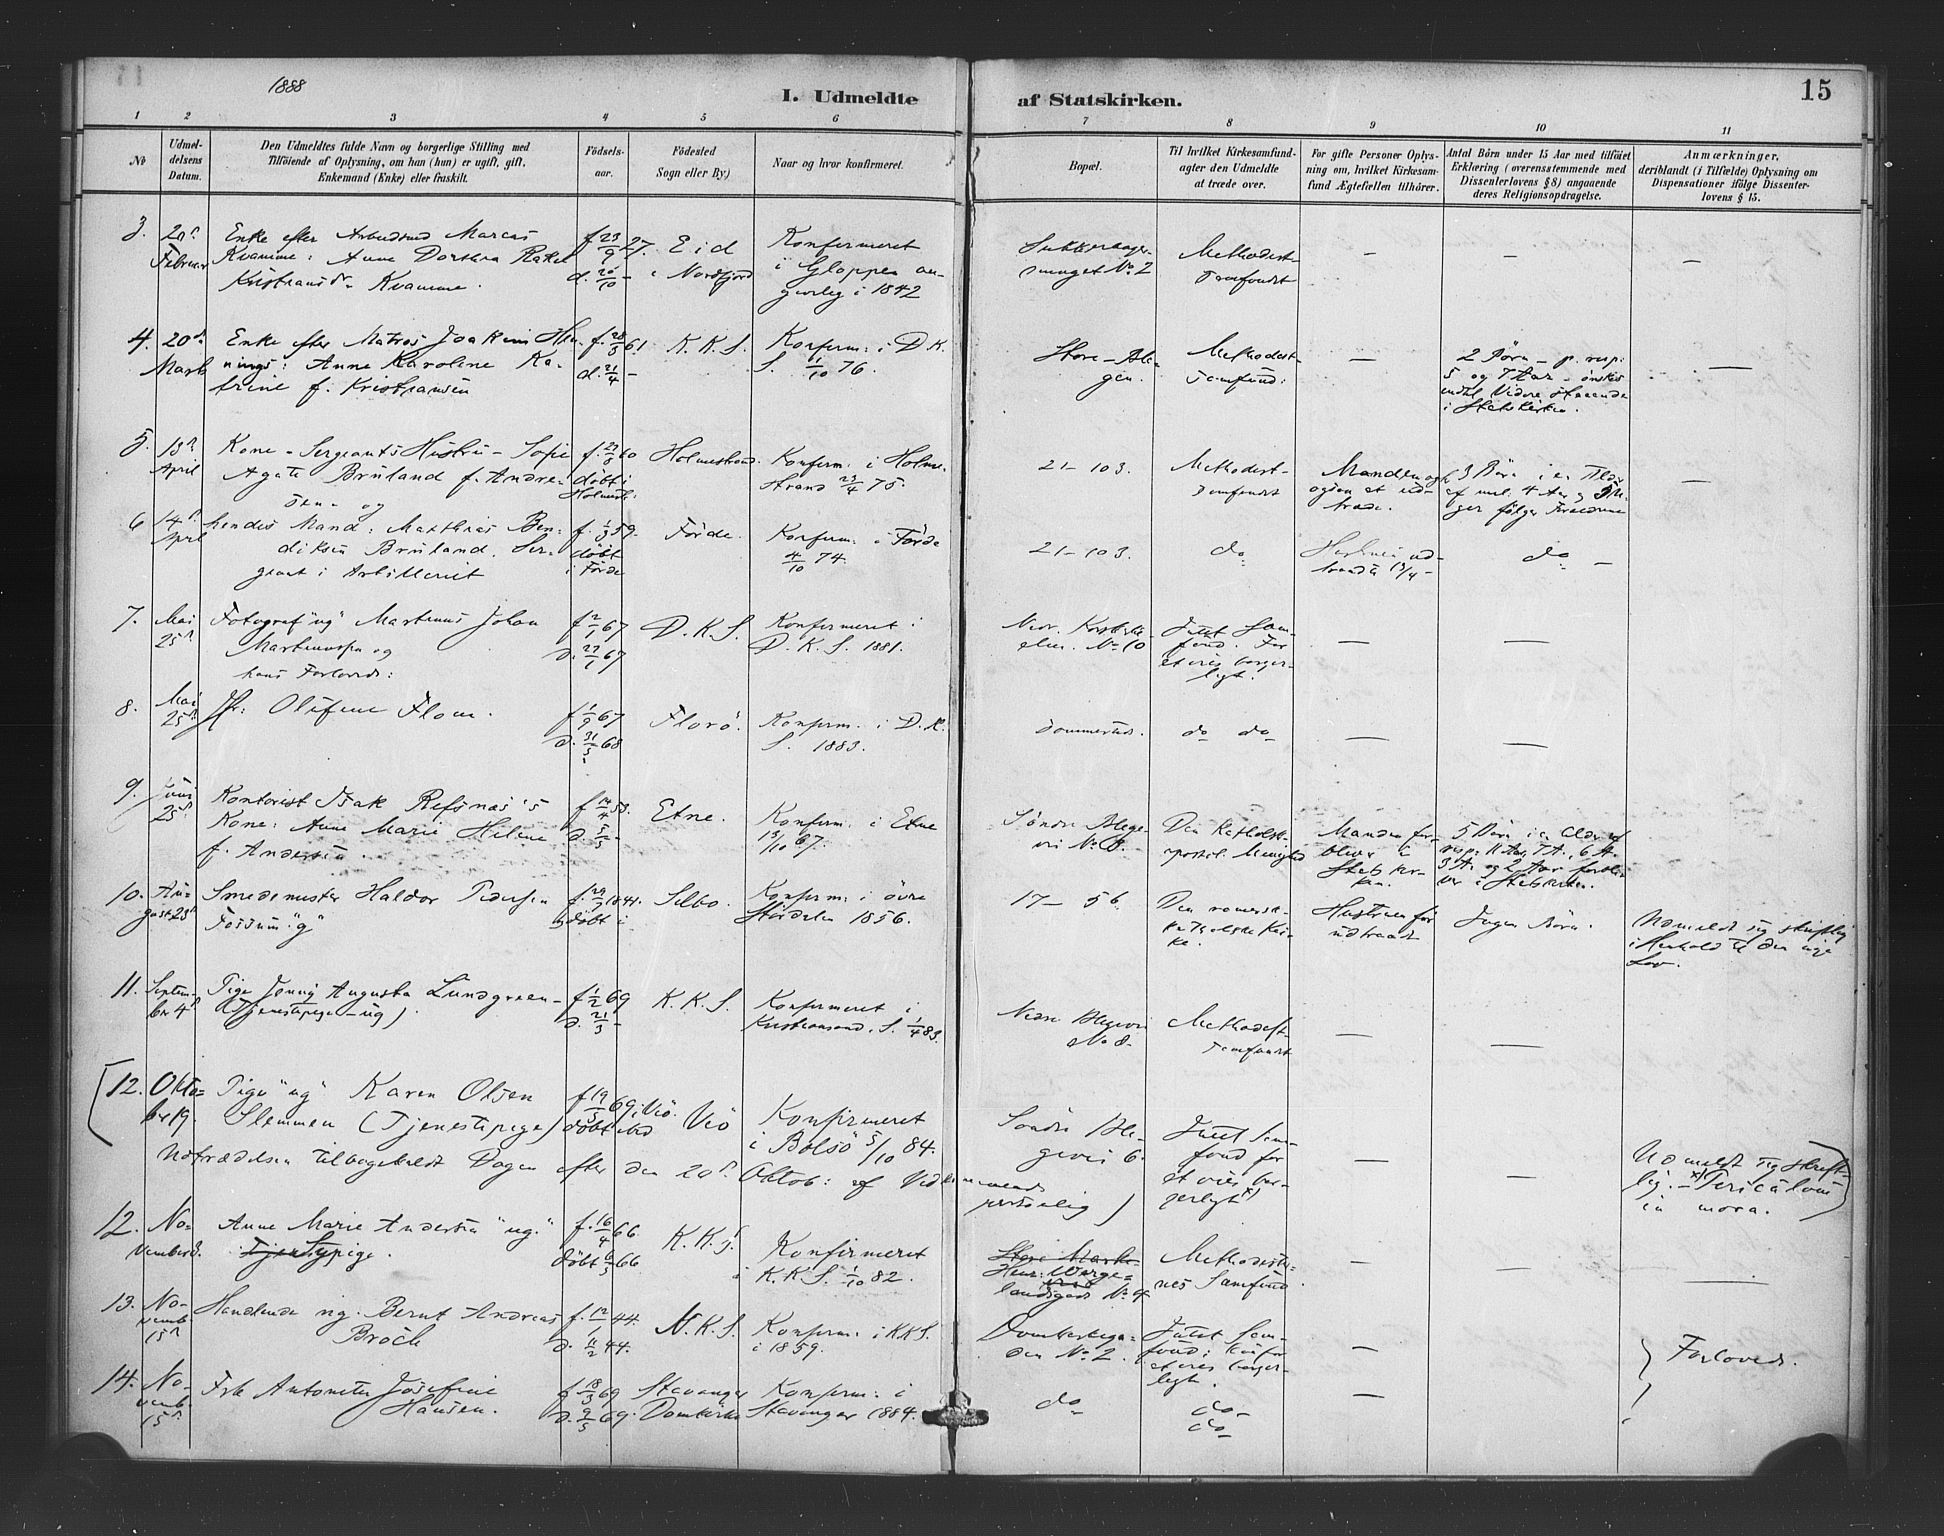 1888
I. Udmeldte af Statskirken.
15
1 2 3 4 5 6 7 8 9 10 11
No
Udmel-
delsens
Datum.
Den Udmeldtes fulde Navn og borgerlige Stilling med
Tilføiende af Oplysning, om han (hun) er ugift, gift,
Enkemand (Enke) eller fraskilt.
Födsels-
aar.
Födested
Sogn eller By)
Naar og hvor konfirmeret.
Bopæl.
Til hvilket Kirkesamfund-
agter den Udmeldte
at træde over.
For gifte Personer Oplys-
ning om, hvilket Kirkesam-
fund Ægtefællen tilhörer.
Antal Börn under 15 Aar med tilföiet
Erklæring (overensstemmende med
Dissenterlovens §8) angaaende
deres Religionsopdragelse.
Anmærkninger,
deriblandt (i Tilfælde) Oplysning om
Dispensationer ifölge Dissenter-
lovens § 15.
3.
Februar
Enke efter Arbeidsmd Marcus
Kvamme: Anne Dorthea Rakel
Kristiansdr Kvamme.
f 23/9 27.
d. 20/10 -
Eid
i Nordfjord
Konfirmeret
i Gloppen an-
givelig i 1842
smuget No 2
Methodist-
samfundet
4.
20de
Marts
Enke efter Matros Joakim Hen-
nings: Anne Karoline Ka-
trine f. Kristiansen
f. 28/3 61
d. 21/4 -
K. K. S.
Konfirm: i D. K.
S. 1/10 76.
Store-Ble-
gen.
Methodist-
samfund:
2 Börn - p. resp:
5 og 7 Aar - önskes
indtil Videre staaende
i Statskirken.
5.
13de
April
Kone - Sergeants Hustru - Sofie
Agate Bruland f. Andre-
sen - og
f. 23/8 60
döbt i
Holmestr:
Holmestrand.
Konfirm: i Holme-
strand 23/4 75.
21-103.
Methodist-
samfundet
Manden og
ogsaa at ud-
træde.
3 Börn i en Alder
af
ger følger Forældrene
6
14de
April
hendes Mand: Matthias Ben-
diksen Bruland, Ser-
geant i Artilleriet
f. 1/3 59.
döbt
i Förde
Förde.
Konfirm: i Förde
4/10 74.
21-103.
do
Hustruen ud-
traadt 13/4 -
do
7.
Mai
25de
Fotograf "ug" Martinus Johan
Martinussen og
hans Forlovede:
f 2/1 67
d. 27/1 67
D. K. S.
Konfirmeret i
D. K. S. 1881.
No 10
Intet Sam-
fund. For
at vies borger-
ligt.
8.
Mai
25de
Jfr: Olufine Flom.
f 1/9 67
d. 31/5 68
Florö.
Konfirm. i D. K.
S. 1883.
sammesteds.
do do
9.
Juni
25de
Kontorist Isak Refsnæs's
Kone: Anne Marie Helene
f. Andersen.
f 14/4 53.
d. 5/5 -
Etne.
Konfirm. i Etne
13/10 67.
Söndre Blege-
vei No 8.
Den katholsk-
apostol. Menighed
Manden for-
bliver i
Statskir-
ken.
5 Börn i en Alder af
resp: 11 Aar, 7 A., 6 A.
3 A. og 2 Aar forbli-
ver i Statskirken.
10.
Au-
gust 23de
Smedemester Haldor Pedersen
Fossum "g"
döbt i
Selbo.
Konfirm: i övre
Stördalen 1856.
17-56.
Den romersk-
katholske Kir-
ke.
Hustruen för
udtraadt
Ingen Börn.
Udmeldt sig skriftlig
i Henhold til den nye
Lov.
11.
Septem-
ber 4de
Pige Jenny Augusta Lundgreen -
(Tjenestepige - ug).
f 1/2 69
d. 21/3 -
K. K. S.
Konfirmeret i
Kristiansand. S. 1/4 83.
Nedre Blegevei
No 8
Methodist-
samfundet
12.
Okto-
ber 19.
Pige "ug" Karen Olsen
Slemmen (Tjenestepige)
f 19/5 69 i Veö.
döbt ibid
Veö
Konfirmeret
i Bolsö 5/10 84.
Söndre Ble-
gevei 6.
Intet Sam-
fund for
at vies bor-
gerligt x)
Udmeldt sig skrift-
lig. - x) Periculum
in mora.
Udtrædelsen tilbagekaldt Dagen efter den 20de Oktob: af Vedkommende
personlig)
12.
No-
vember
Anne Marie Andersen "ug."
Tjenestepige.
f. 16/4 66
döbt 6/5 66
K. K. S.
Konfirmeret
i K. K. S. 1/10 82.
Store Marke-
vei
Henr: Werge-
landsgade No 4
Methodister-
nes Samfund
13.
No-
vemb.
15de
Handlende ug. Bernt Andreas
Broch
f. 12/1 44.
d. 11/2 44.
N. K. S.
Konfirm: i KKS.
i 1859.
Domkirkega-
den No 2.
Intet Sam-
fund: kun for
at vies borger-
ligt.
Forlovede.
14.
No-
vemb.
15de
Frk Antonette Josefine
Hansen.
f 18/3 69
d. 9/5 69.
Stavanger
Domkirke
Konfirm: i
Stavanger 1884.
do
do
do